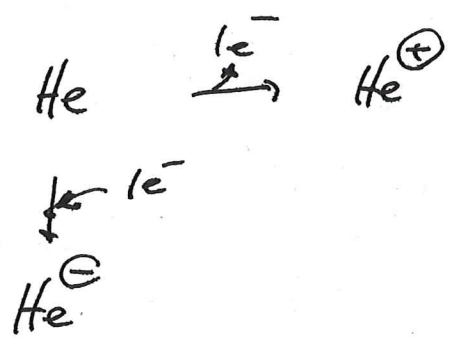 1e⁻
He → He⊕
1e⁻
He⊖